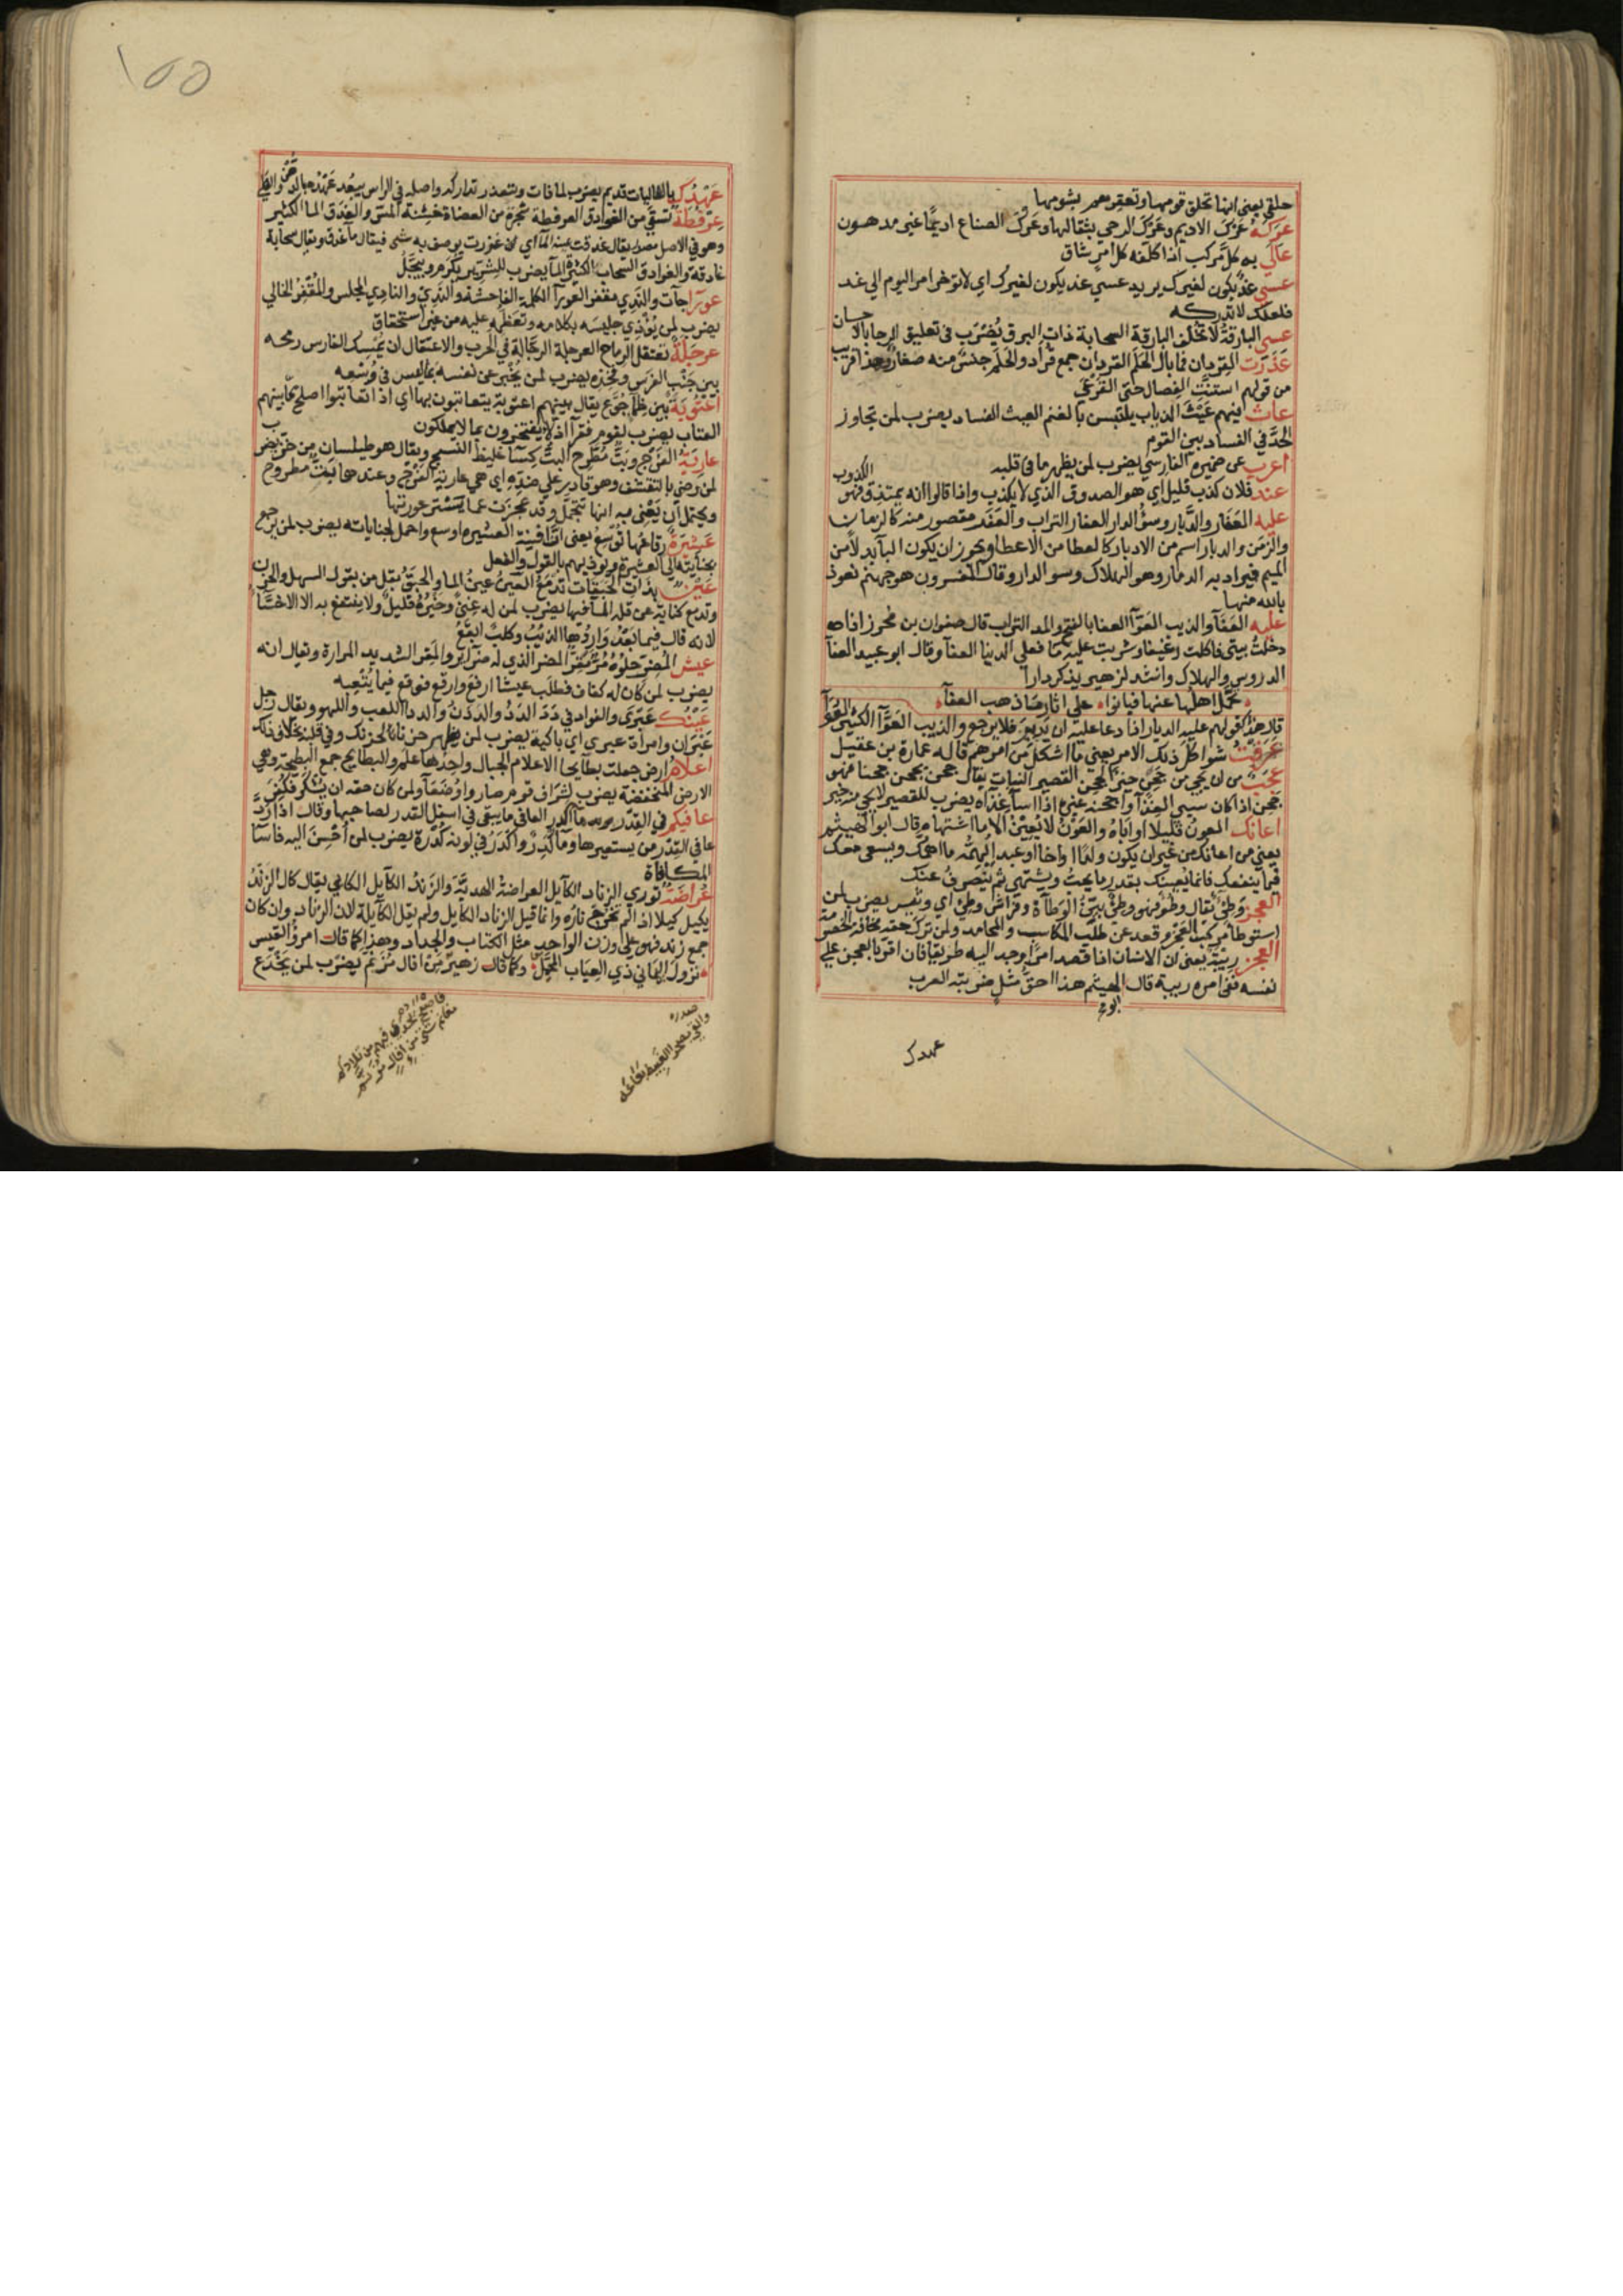 حلقي يعني انها تحلق قومها وتعقرهم بشومها
عركه عرك الاديم وعرك الرحي بثفالها وعرك الصناع اديما غير مدهون
عالي به كل مركب اذا كلفه كل امر شاق
عسي غد يكون لغيرك يريد عسي غد يكون لغيرك اي لا توخر امر اليوم الي غد
فلعلك لا تدركه
عسي البارقة لا تخلف البارقة السحابة ذات البرق يضرب في تعليق الرجا بالاحسان
عذرت القردان فما بال الحلم القردان جمع قراد والحلم جنس منه صغار وهذا قريب
من قولهم استنت الفصال حتي القرعي
عاث فيهم عيث الذياب يلتبس بالغنم العيث الفساد يضرب لمن تجاوز
الحد في الفساد بين القوم
اعرب عن ضميره الفارسي يضرب لمن يظهر ما في قلبه
عند فلان كذب قليل اي هو الصدوق الذي لا يكذب واذا قالوا انه يمتذق فهو الكذوب
عليه العفار والدبار وسؤ الدار العفار التراب والعفر مقصور منه كالزمان
والزمن والدبار اسم من الادبار كالعطا من الاعطا ويجوز ان يكون البا بدلا من
الميم فيراد به الدمار وهو الهلاك وسو الدار وقال المفسرون هو جهنم نعوذ
بالله منها
عليه العفآ والذيب العوآ العفا بالفتح والمد التراب قال صفوان بن محرز اذا
دخلت بيتي فاكلت رغيفا وشربت عليه ما فعلي الدنيا العفآ وقال ابو عبيد العفآ
الدروس والهلاك وانشد لزهير يذكر دارا
تحمل اهلها عنها فبانوا علي اثار ما ذهب العفآء
قال هذا كقولهم عليه الديار اذا دعا عليه ان يدبر فلا يرجع والذيب العوآ الكثير العوآ
عرفت شواكل ذلك الامر يعني ما اشكل من امرهم قاله عمارة بن عقيل
عجبت من ان يجي من جحن خير الجحن القصير النبات يقال جحن يجحن جحنا فهو
جحن اذا كان سيي الغذآ واجحنه غيره اذا اسآ غذآه يضرب للقصير لا يجي منه خير
اعانك العون قليلا او اباه والعون لا يعين الا ما اشتهاه قال ابو الهيثم
يعني من اعانك من غير ان يكون ولدا او اخا او عبدا يهمه ما اهمك ويسعي معك
فيما ينفعك فانما يعينك بقدر ما يحب ويشتهي ثم ينصرف عنك
العجز وطي يقال وطؤ فهو وطي بين الوطآة وفراش وطي اي وثير يضرب لمن
استوطا مركب العجز وقعد عن طلب المكاسب والمحامد ولمن ترك حقه مخافة الخصومة
العجز ريبة يعني ان الانسان اذا قصد امرا وجد اليه طريقا فان اقر بالعجز علي
نفسه ففي امره ريبة قال ابو الهيثم هذا احق مثل ضربته العرب
عهدك
١٥٥
عهدك بالغاليات قديم يضرب لما فات ويتعذر تداركه واصله في الراس يبعد عهده بالدهن والفلي
عرفطة تسقي من الغوادق العرفطة شجرة من العضاة خشنة المس والغدق الما الكثير
وهو في الاصل مصدر يقال غدقت عين المآ اي غزرت يوصف به شي فيقال مآ غدق ويقال سحابة
غادقة والغوادق السحاب الكثيرة المآ يضرب للشرير يكرم ويبجل
عورا جآت والندي مقفر العورآ الكلمة الفاحشة والندي والنادي المجلس والمقفر الخالي
يضرب لمن يؤذي جليسه بكلامه وتعظمه عليه من غير استحقاق
عرجلة تعتقل الرماح العرجلة الرجالة في الحرب والاعتقال ان يمسك الفارس رمحه
بين جنب الفرس وفخذه يضرب لمن يخبر عن نفسه بما ليس في وسعه
اعتوبة بين ظمآ جوع يقال بينهم اعتوبة يتعاتبون بها اي اذا تعاتبوا اصلح ما بينهم
العتاب يضرب لقوم فقرآ اذلا يفتخرون بما لا يملكون
عارية الفرج وبت مطرح البت كسآ غليظ النسج ويقال هو طيلسان من خز يضرب
لمن رضي بالتقشف وهو قادر علي ضده اي هي عارية الفرج وعندها بت مطروح
ويحتمل ان يعني به انها تتجمل وقد عجزت عما يستر عورتها
عشيرة رفاغها توسع يعني ان افنية العشيرة اوسع واحمل لجناياته يضرب لمن يرجع
بجنايته الي العشيرة ويوذيهم بالقول والفعل
عين بذات الحبقات تدمع العين عين الما والحبق بقل من بقول السهل والحزن
وتدمع كناية عن قلة المآ فيها يضرب لمن له غني وخيره قليل ولا ينتفع به الا الاخسآ
لانه قال فيما بعد واردها الذئب وكلب ابقع
عيش المضر حلوه مر مقر المضر الذي له ضرائر والمقر الشديد المرارة ويقال انه
يضرب لمن كان له كفاف فطلب عيشا ارفع وارفع فوقع فيما يتعبه
عينك عبري والفواد في دد الدد والددن والددا اللعب واللهو ويقال رجل
عبران وامراة عبري اي باكية يضرب لمن يظهر حزنا لحزنك وفي قلبه خلاف ذلك
اعلام ارض جعلت بطايحا الاعلام الجبال واحدها علم والبطايح جمع البطيحة وهي
الارض المنخفضة يضرب لشراف قوم صاروا وضعآ ولمن كان حقه ان يشكر فكفر
عافيكم في القدر ما اكدر العافي ما يبقي في اسفل القدر لصاحبها وقال اذا رد
عافي القدر من يستعيرها ومآ كدر واكدر في لونه كدرة يضرب لمن احسن اليه فاسآ
المكافاة
عراضة توري الزناد الكايل العراضة الهدية والزند الكايل الكابي يقال كال الزند
يكيل كيلا اذا لم تخرج ناره وانما قيل الزناد الكايل ولم يقل الكآيلة لان الزناد وان كان
جمع زند فهو علي وزن الواحد مثل الكتاب والجدار وهذا كما قال امرؤ القيس
نزول اليماني ذي العياب المحمل وكما قال زهير من افال مزنم يضرب لمن يخدع
صدره
والقي بصحرا الغبيط بعاعه
فاصبح يحدي فيهم من تلادكم
مغانم شتي من افال مزنم